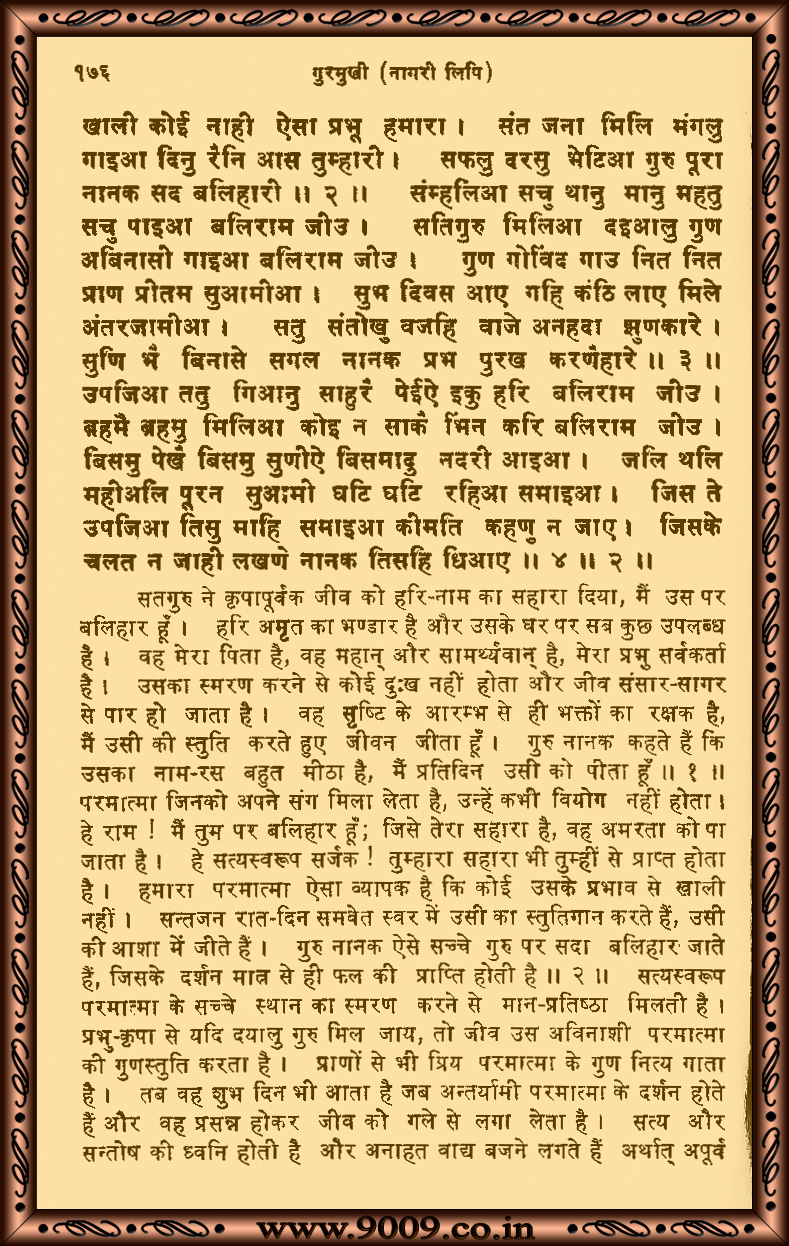 १७६ गुरमुखी (नागरी लिपि)
खाली कोई नाही ऐसा प्रभू हमारा । संत जना मिलि मंगलु
गाइआ दिनु रैनि आस तुम्हारी । सफलु दरसु भेटिआ गुरु पूरा
नानक सद बलिहारी ॥ २ ॥ संम्हलिआ सचु थानु मानु महतु
सचु पाइआ बलिराम जीउ । सतिगुरु मिलिआ दइआलु गुण
अबिनासी गाइआ बलिराम जीउ । गुण गोविंद गाउ नित नित
प्राण प्रीतम सुआमीआ । सुभ दिवस आए गहि कंठि लाए मिले
अंतरजामीआ । सतु संतोखु वजहि वाजे अनहदा झुणकारे ।
सुणि भै बिनासे सगल नानक प्रभ पुरख करणैहारे ॥ ३ ॥
उपजिआ ततु गिआनु साहुरै पेईऐ इकु हरि बलिराम जीउ ।
ब्रहमै ब्रहमु मिलिआ कोइ न साकै भिंन करि बलिराम जीउ ।
बिसमु पेखै बिसमु सुणीऐ बिसमादु नदरी आइआ । जलि थलि
महीअलि पूरन सुआमी घटि घटि रहिआ समाइआ । जिस ते
उपजिआ तिसु माहि समाइआ कीमति कहणु न जाए । जिसके
चलत न जाही लखणे नानक तिसहि धिआए ॥ ४ ॥ २ ॥
सतगुरु ने कृपापूर्वक जीव को हरि-नाम का सहारा दिया, मैं उस पर
बलिहार हूँ । हरि अमृत का भण्डार है और उसके घर पर सब कुछ उपलब्ध
है । वह मेरा पिता है, वह महान् और सामर्थ्यवान् है, मेरा प्रभु सर्वकर्ता
है । उसका स्मरण करने से कोई दुःख नहीं होता और जीव संसार-सागर
से पार हो जाता है । वह सृष्टि के आरम्भ से ही भक्तों का रक्षक है,
मैं उसी की स्तुति करते हुए जीवन जीता हूँ । गुरु नानक कहते हैं कि
उसका नाम-रस बहुत मीठा है, मैं प्रतिदिन उसी को पीता हूँ ॥ १ ॥
परमात्मा जिनको अपने संग मिला लेता है, उन्हें कभी वियोग नहीं होता ।
हे राम ! मैं तुम पर बलिहार हूँ; जिसे तेरा सहारा है, वह अमरता को पा
जाता है । हे सत्यस्वरूप सर्जक ! तुम्हारा सहारा भी तुम्हीं से प्राप्त होता
है । हमारा परमात्मा ऐसा व्यापक है कि कोई उसके प्रभाव से खाली
नहीं । सन्तजन रात-दिन समवेत स्वर में उसी का स्तुतिगान करते हैं, उसी
की आशा में जीते हैं । गुरु नानक ऐसे सच्चे गुरु पर सदा बलिहार जाते
हैं, जिसके दर्शन मात्र से ही फल की प्राप्ति होती है ॥ २ ॥ सत्यस्वरूप
परमात्मा के सच्चे स्थान का स्मरण करने से मान-प्रतिष्ठा मिलती है ।
प्रभु-कृपा से यदि दयालु गुरु मिल जाय, तो जीव उस अविनाशी परमात्मा
की गुणस्तुति करता है । प्राणों से भी प्रिय परमात्मा के गुण नित्य गाता
है । तब वह शुभ दिन भी आता है जब अन्तर्यामी परमात्मा के दर्शन होते
हैं और वह प्रसन्न होकर जीव को गले से लगा लेता है । सत्य और
सन्तोष की ध्वनि होती है और अनाहत वाद्य बजने लगते हैं अर्थात् अपूर्व
www.9009.co.in